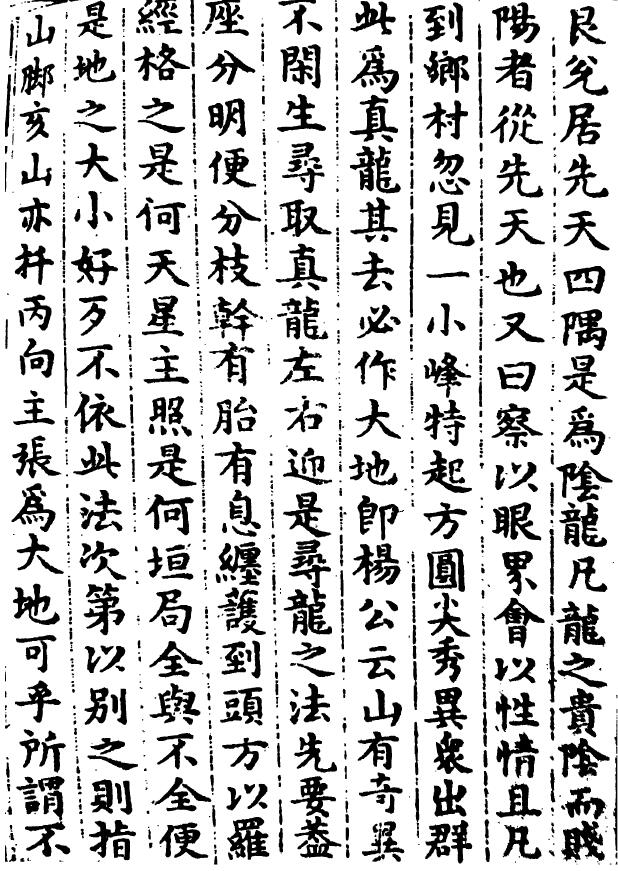 艮兌居先天四隅是爲陰龍凡龍之貴陰而賤
陽者從先天也又曰察以眼界會以性情且凡
到鄉村忽見一小峰特起方圓尖秀異衆出群
此爲真龍其去必作大地卽楊公云山有奇異
不閑生尋取真龍左右迎是尋龍之法先要葢
座分明便分枝幹有胎有息纏護到頭方以羅
經格之是何天星主照是何垣局全與不全便
是地之大小好歹不依此法次第以別之則指
山脚亥山亦扦丙向主張爲大地可乎所謂不